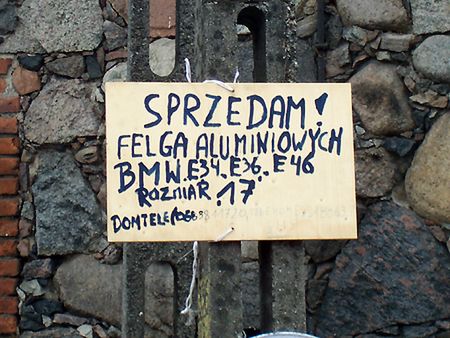 SPRZEDAM!
FELGA ALUMINIOWYCH
BMW.E34.E36.E46
ROZMIAR .17
DOMTELE